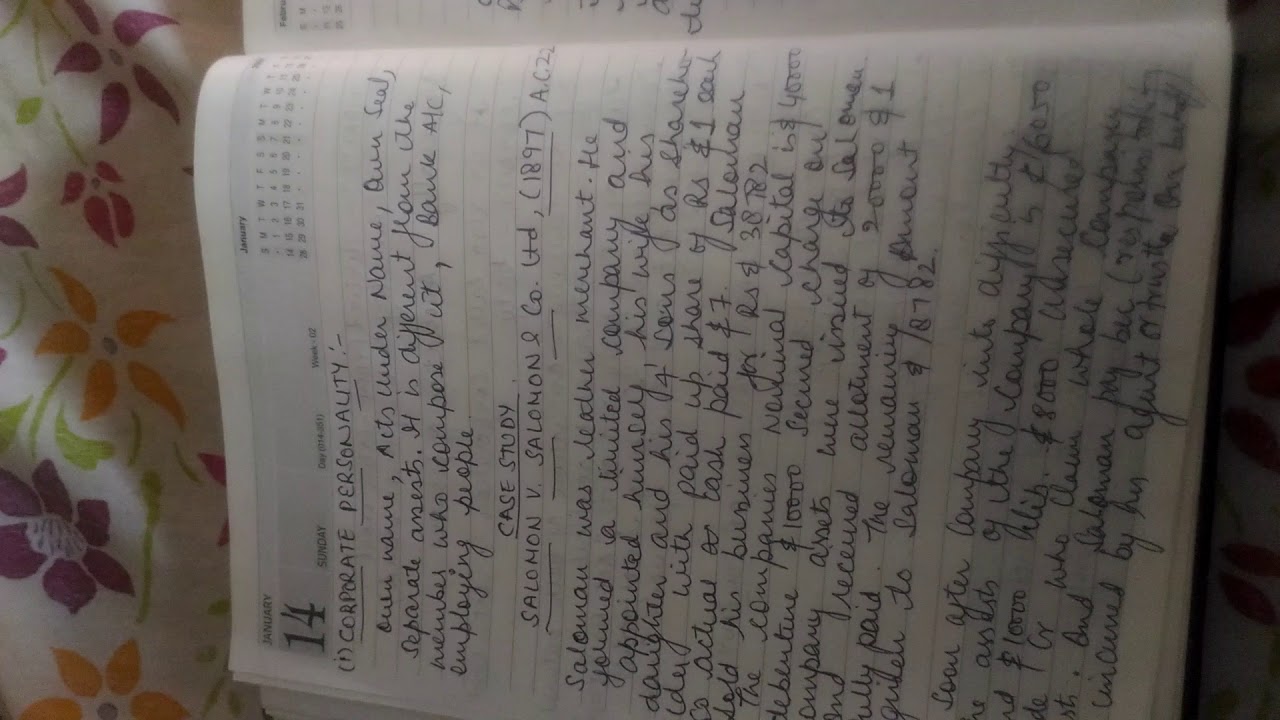 JANUARY
14
SUNDAY
Day (014-351)
Week - 02
January
S M T W T F S S M T W T F S
- 1 2 3 4 5 6 7 8 9 10 11 12 13
14 15 16 17 18 19 20 21 22 23 24 25 26 27
28 29 30 31
(i) CORPORATE PERSONALITY:-
own name, Acts under Name, Own Seal,
Separate assest. It is different from the
member who compose it, Bank A/C,
employing people.
CASE STUDY
SALOMON V. SALOMON & Co. Ltd, (1897) A.C 22
Saloman was leather merchant. He
formed a limited company and
appointed himself, his wife his
daughter and his 4 sons as shareho-
lder with paid up share of Rs $1 each
So actual or Cash paid $7. Saloman
sold his business for Rs $ 38782
The companies nominal capital is $ 40000
debenture $ 10000 secured charge on
company asset were issued to Saloman
and received allotment of 20000 $ 1
fully paid. The remaining amount
to Saloman $ 8782.
Soon after Company into difficulty
the assets of the Company $ 6050
and $ 10000 $ 8000 unsecured
Cr who claim whole Company
And Saloman pay bec (responsibility
incurred by his agent or trustee on behalf)